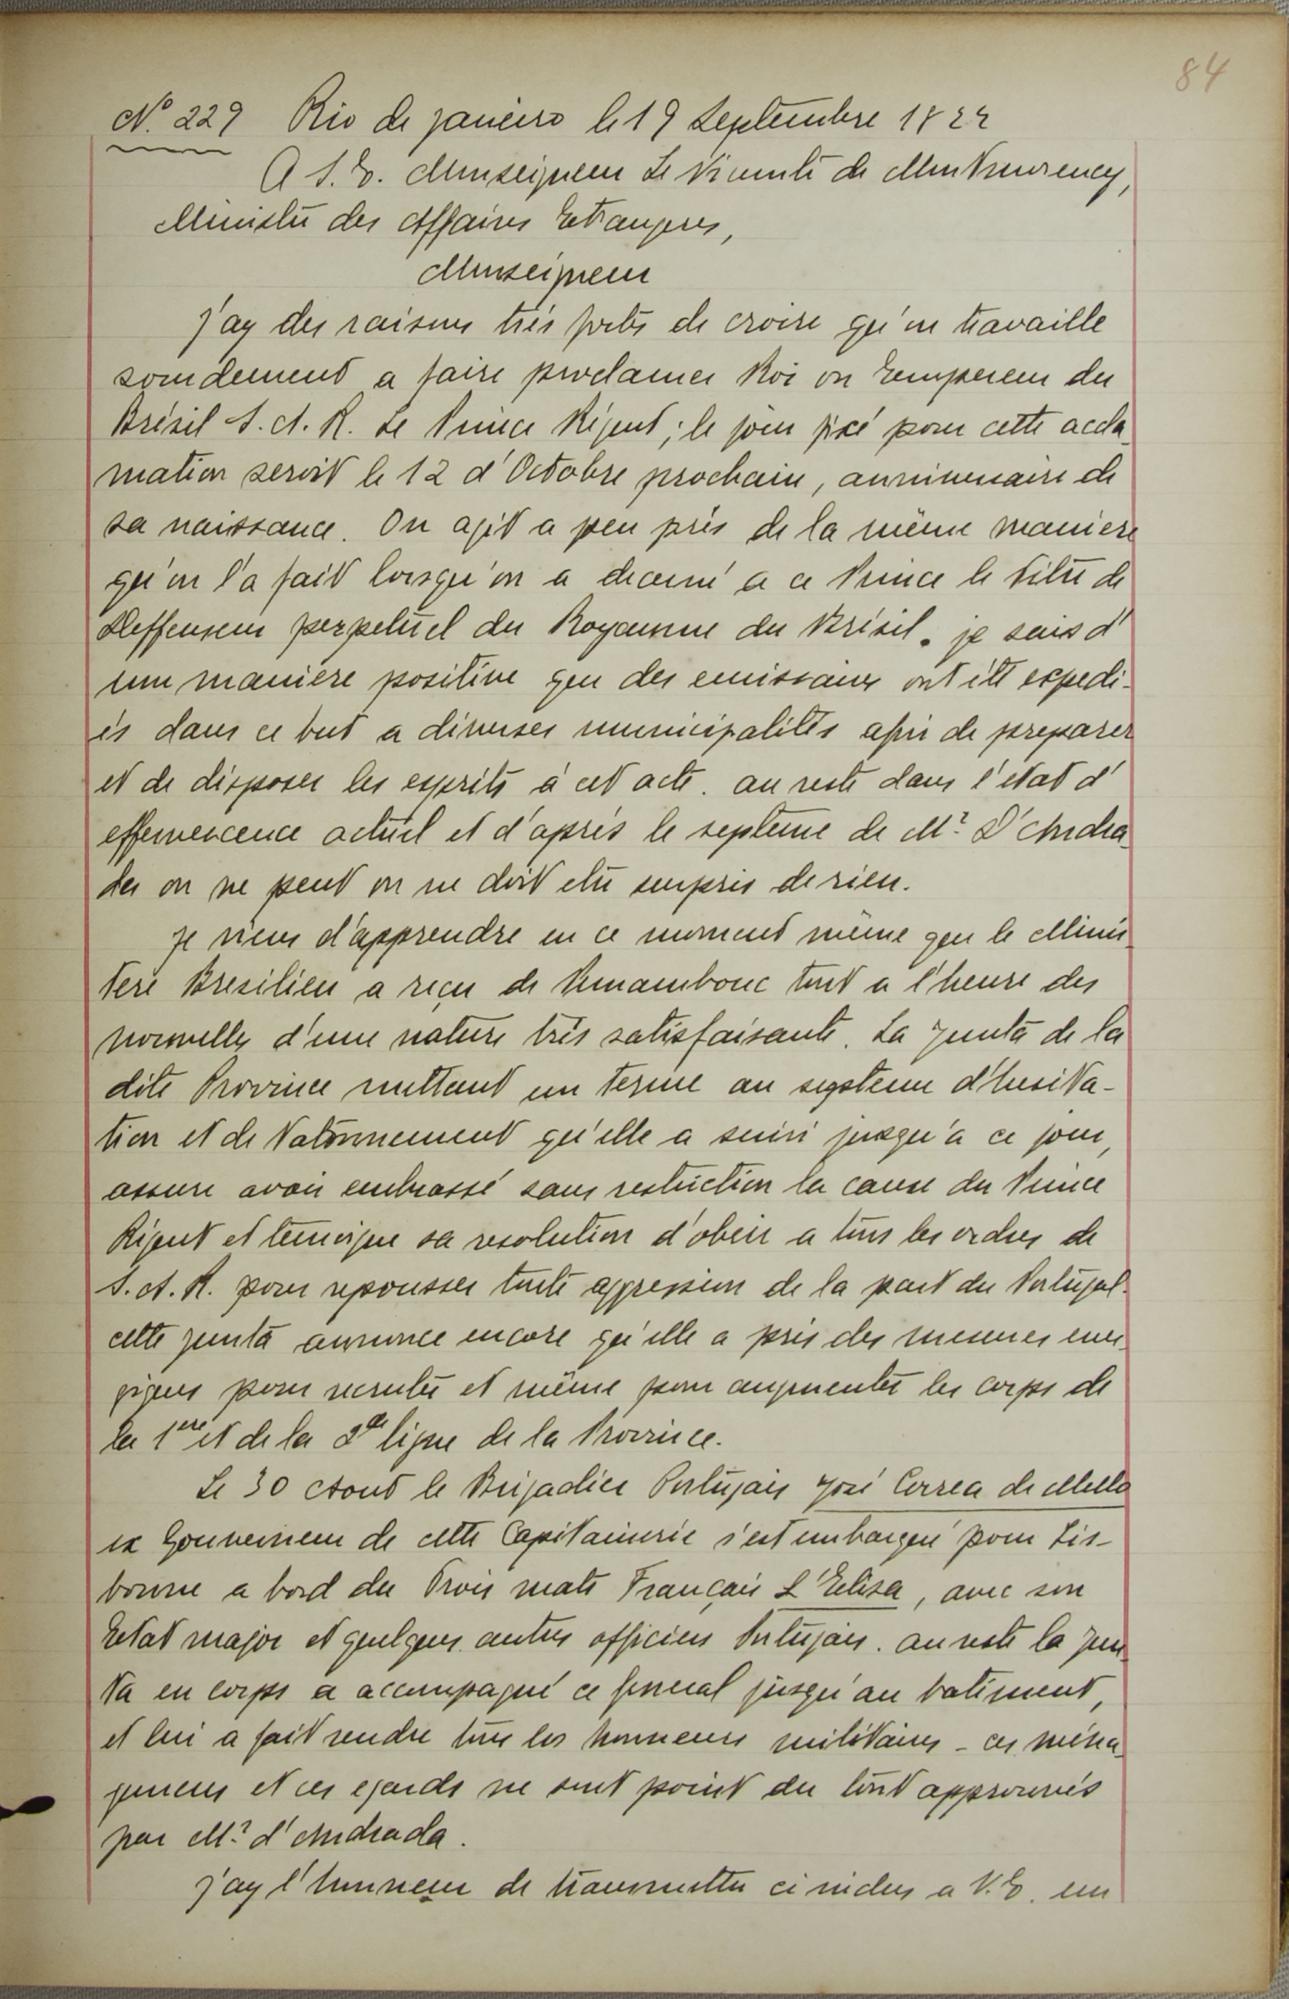 84
N.º 229 Rio de janeiro le 19 Septembre 1822
A S. E. Monseigneur Le Vicomte de Montmorency,
Ministre des Affaires Etrangeres,
Monseigneur
j'ay des raisons très fortes de croire qu'on travaille
sourdement a faire proclamer Roi ou Empereur du
Brésil S. A. R. Le Prince Régent; le jour fixé pour cette accla-
mation seroit le 12 d'Octobre prochain, anniversaire de
sa naissance. On agit a peu près de la même maniere
qu'on l'a fait lorsqu'on a decerné a ce Prince le titre de
Deffenseur perpetuel du Royaume du Brésil. je sais d'
une maniere positive que des emissaires ont été expedi-
és dans ce but a diverses municipalités afin de preparer
et de disposer les esprits à cet acte. au reste dans l'etat d'
effervescence actuel et d'après le septeme de Mr. D'Andra-
des on ne peut on ne doit etre surpris de rien.
je viens d'apprendre en ce moment même que le Minis-
tere Bresilien a reçu de Pernambouc tout a l'heure des
nouvelles d'une nature très satisfaisante. La Junta de la
dite Province mettant un terme au systeme d'hesita-
tion et de tatonnement qu'elle a suivi jusqu'a ce jour,
assure avoir embrassé sans restriction la cause du Prince
Régent et temoigne sa resolution d'obeir a tous les ordres de
S. A. R. pour repousser toute aggression de la part du Portugal.
cette junta annonce encore qu'elle a pris des mesures ener-
giques pour recruter et même pour augmenter les corps de
la 1ere et de la 2de ligne de la Province.
Le 30 Aout le Brigadier Portugais José Correa de Mello
ex Gouverneur de cette Capitainerie s'est embarqué pour Lis-
bonne a bord du Trois mats Français L'Elisa, avec son
Etat major et quelques autres officiers Portugais. au reste la Jun-
ta en corps a accompagné ce general jusqu'au batiment,
et lui a fait rendre tous les honneurs militaires - ces ména-
gemens et ces egards ne sont point du tout approuvés
par Mr. d'Andrada.
j'ay l'honneur de transmettre ci inclus a V. E. un